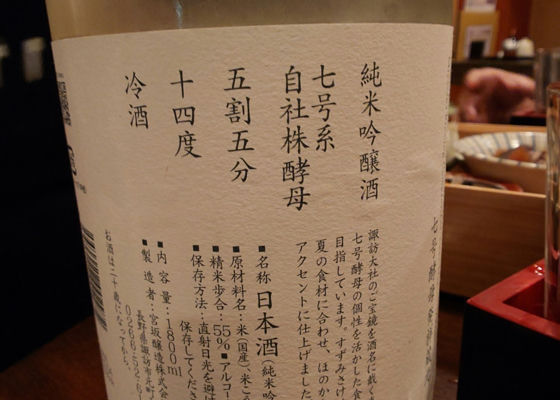 純米吟醸酒
七号系
自社株酵母
五割五分
十四度
冷酒
七号酵母発祥
諏訪大社のご宝鏡を酒名に戴く
七号酵母の個性を活かした食
目指しています。すずみさけ
夏の食材に合わせ、ほのか
アクセントに仕上げました
■名称 日本酒 純米吟
■原材料名:米(国産)、米こ
■精米歩合:55% ■アルコー
■保存方法:直射日光を避
保存してくださ
■内容量:1800ml
■製造者:宮坂醸造株式会
長野県諏訪市元町
0266-52-61
お酒は二十歳になってから。